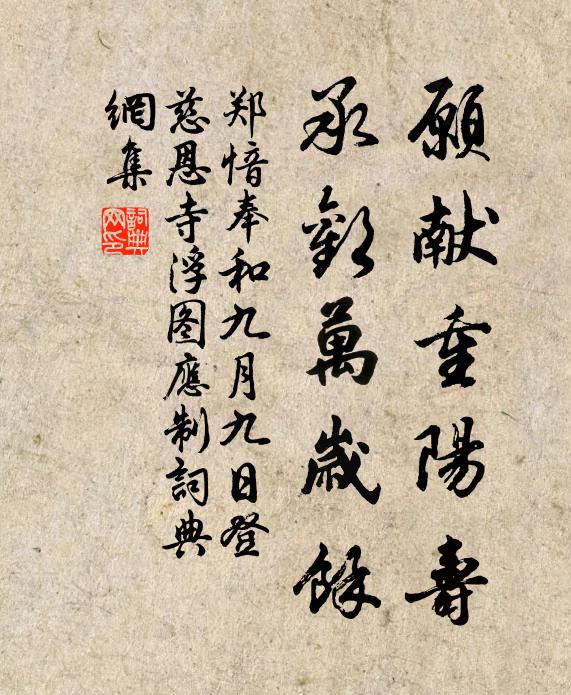 願献重陽壽
承歡萬歳餘
郑愔奉和九月九日登
慈恩寺浮图應制詞典
網集
詞典网印